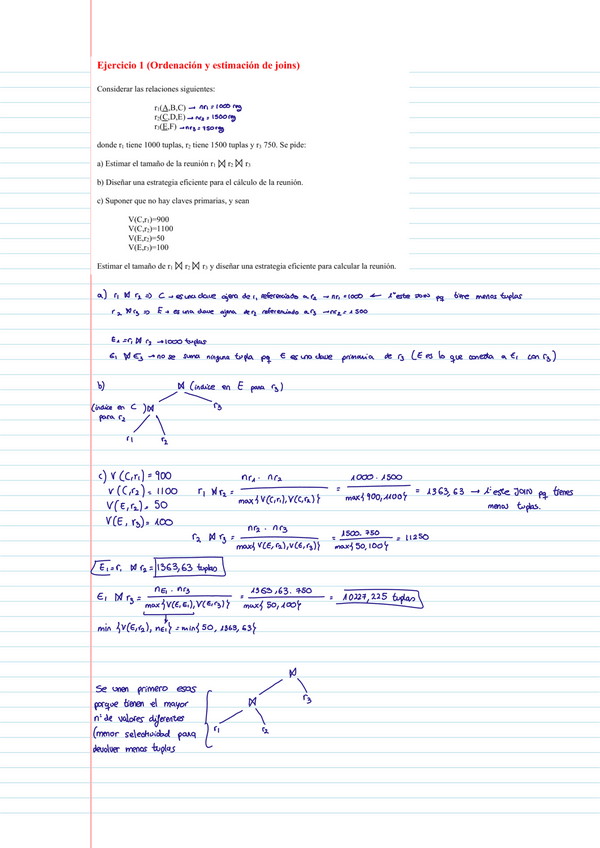 Ejercicio 1 (Ordenación y estimación de joins)
Considerar las relaciones siguientes:
r₁(A,B,C) → nr₁ = 1000 reg
r₂(C,D,E) → nr₂ = 1500 reg
r₃(E,F) → nr₃ = 750 reg
donde r₁ tiene 1000 tuplas, r₂ tiene 1500 tuplas y r₃ 750. Se pide:
a) Estimar el tamaño de la reunión r₁ ⋈ r₂ ⋈ r₃
b) Diseñar una estrategia eficiente para el cálculo de la reunión.
c) Suponer que no hay claves primarias, y sean
V(C,r₁)=900
V(C,r₂)=1100
V(E,r₂)=50
V(E,r₃)=100
Estimar el tamaño de r₁ ⋈ r₂ ⋈ r₃ y diseñar una estrategia eficiente para calcular la reunión.
a) r₁ ⋈ r₂ ⇒ C → es una clave ajena de r₁ referenciado a r₂ → nr₁ = 1000 ← 1º este JOIN pq tiene menos tuplas
r₂ ⋈ r₃ ⇒ E → es una clave ajena de r₂ referenciado a r₃ → nr₂ = 1500
E₁ = r₁ ⋈ r₂ → 1000 tuplas
E₁ ⋈ E₃ → no se suma ninguna tupla pq E es una clave primaria de r₃ (E es lo que conecta a E₁ con r₃)
b) ⋈ (índice en E para r₃)
(índice en C para r₂) ⋈ r₃
r₁ r₂
c) V(C,r₁) = 900
V(C,r₂) = 1100
V(E,r₂) = 50
V(E,r₃) = 100
r₁ ⋈ r₂ = nr₁ · nr₂ / max{V(C,r₁),V(C,r₂)} = 1000 · 1500 / max{900,1100} = 1363,63 → 1º este JOIN pq tienes menos tuplas.
r₂ ⋈ r₃ = nr₂ · nr₃ / max{V(E,r₂),V(E,r₃)} = 1500 · 750 / max{50,100} = 11250
E₁ = r₁ ⋈ r₂ = 1363,63 tuplas
E₁ ⋈ r₃ = nE₁ · nr₃ / max{V(E,E₁),V(E,r₃)} = 1363,63 · 750 / max{50,100} = 10227,225 tuplas
min {V(E,r₂), nE₁} = min{50, 1363,63}
Se unen primero esas
porque tienen el mayor
nº de valores diferentes
(menor selectividad para
devolver menos tuplas
⋈
⋈ r₃
r₁ r₂